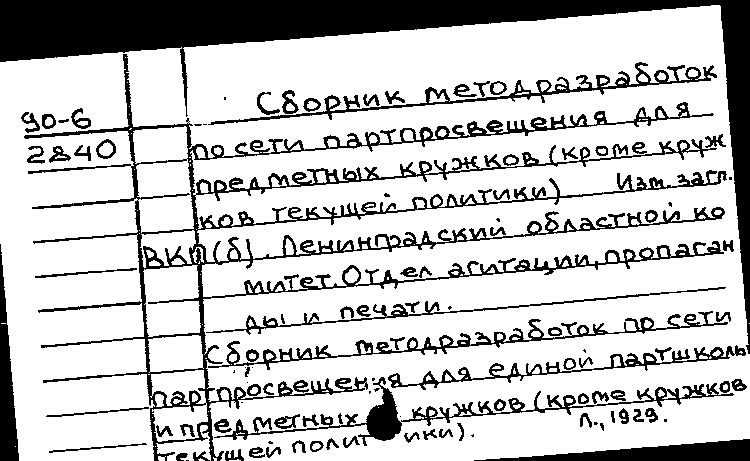 90-6
2840
Сборник методразработок
по сети партпросвещения для
предметных кружков (кроме круж
ков текущей политики) Изм. загл.
ВКП(б). Ленинградский областной ко
митет. Отдел агитации, пропаган
ды и печати.
Сборник методразработок по сети
партпросвещения для единой партшколы
и предметных кружков (кроме кружков
текущей политики). Л., 1929.